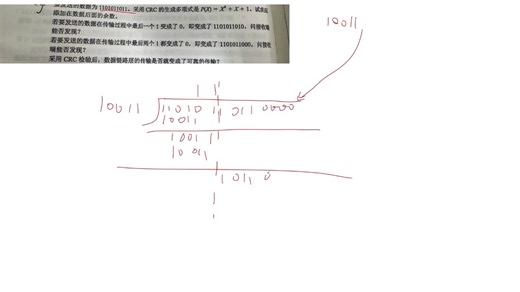 要发送的数据为 1101011011。采用 CRC 的生成多项式是 P(X) = X⁴ + X + 1。试求应
添加在数据后面的余数。
若要发送的数据在传输过程中最后一个 1 变成了 0，即变成了 1101011010，问接收端
能否发现？
若要发送的数据在传输过程中最后两个 1 都变成了 0，即变成了 1101011000，问接收
端能否发现？
采用 CRC 检验后，数据链路层的传输是否就变成了可靠的传输？
10011
1 1
10011
11010 11 011 0000
10011
1001 1
10 011
1 011 0